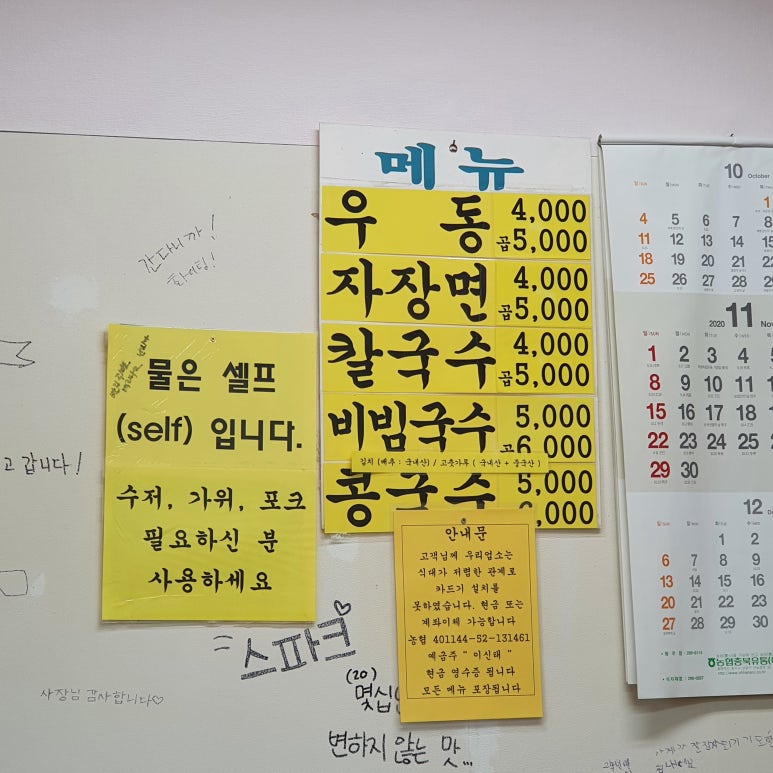 메뉴
우동 4,000
곱 5,000
자장면 4,000
곱 5,000
칼국수 4,000
곱 5,000
비빔국수 5,000
곱 6,000
김치 (배추 : 국내산) / 고춧가루 ( 국내산 + 중국산 )
콩국수 5,000
,000
안내문
고객님께 우리업소는
식대가 저렴한 관계로
카드기 설치를
못하였습니다. 현금 또는
계좌이체 가능합니다
농협 401144-52-131461
예금주 " 이신태 "
현금 영수증 됩니다
모든 메뉴 포장됩니다
물은 셀프
(self) 입니다.
수저, 가위, 포크
필요하신 분
사용하세요
간다니까!
화이팅!
고 갑니다!
= 스파크♡
사장님 감사합니다♡
(20)
몇십
변하지 않는 맛...
10 October
일/SUN 월/MON 화/TUE 수/WED 목/THU
1
4 5 6 7 8
11 12 13 14 15
18 19 20 21 22
25 26 27 28 29
2020 11 Nov
일/SUN 월/MON 화/TUE 수/WED
1 2 3 4 5
8 9 10 11 12
15 16 17 18 19
22 23 24 25 26
29 30
12
1 2
6 7 8 9
13 14 15 16
20 21 22 23
27 28 29 30
농협충북유통